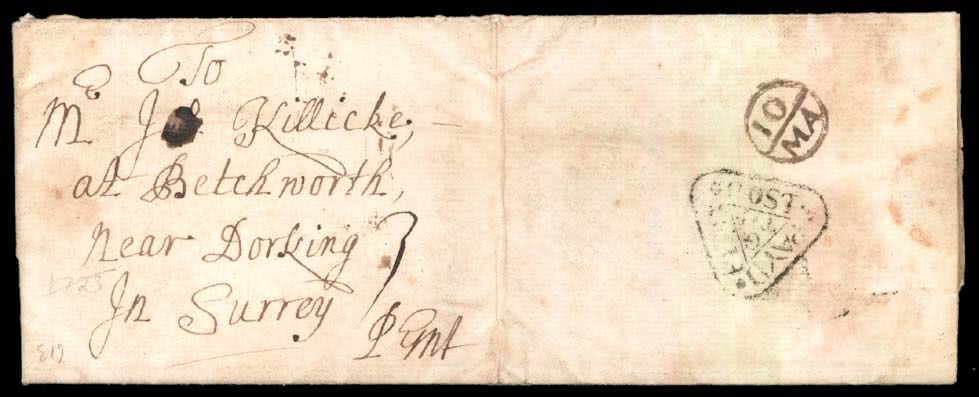 To
Mr Killicke,
at Betchworth,
Near Dorking
In Surrey
1725
10
MA
POST
PAYD